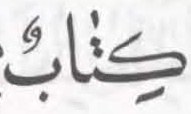 كِتٰابٌ